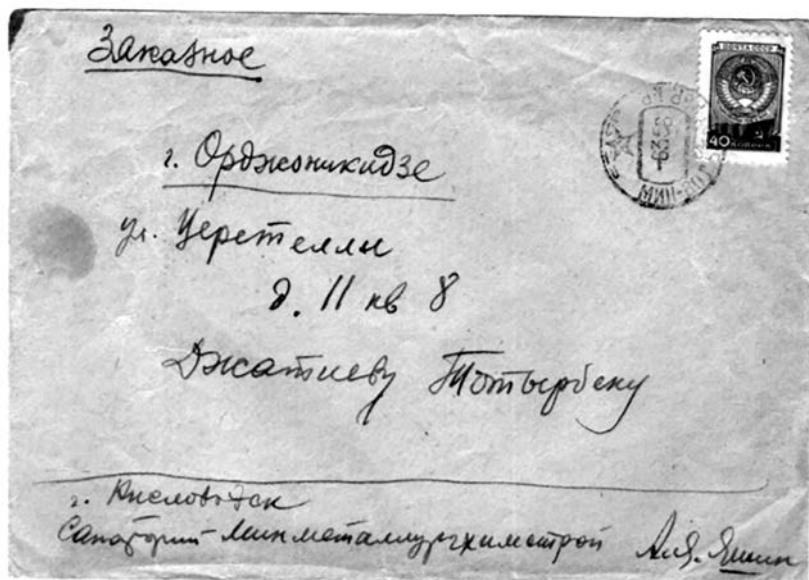 Заказное
ПОЧТА СССР
40 КОПЕЕК
МИН-ВОДЫ
г. Орджоникидзе
ул. Церетелли
д. 11 кв 8
Джатиеву Тотырбеку
г. Кисловодск
Санаторий Минметаллургхимстрой А.Я. Яшин